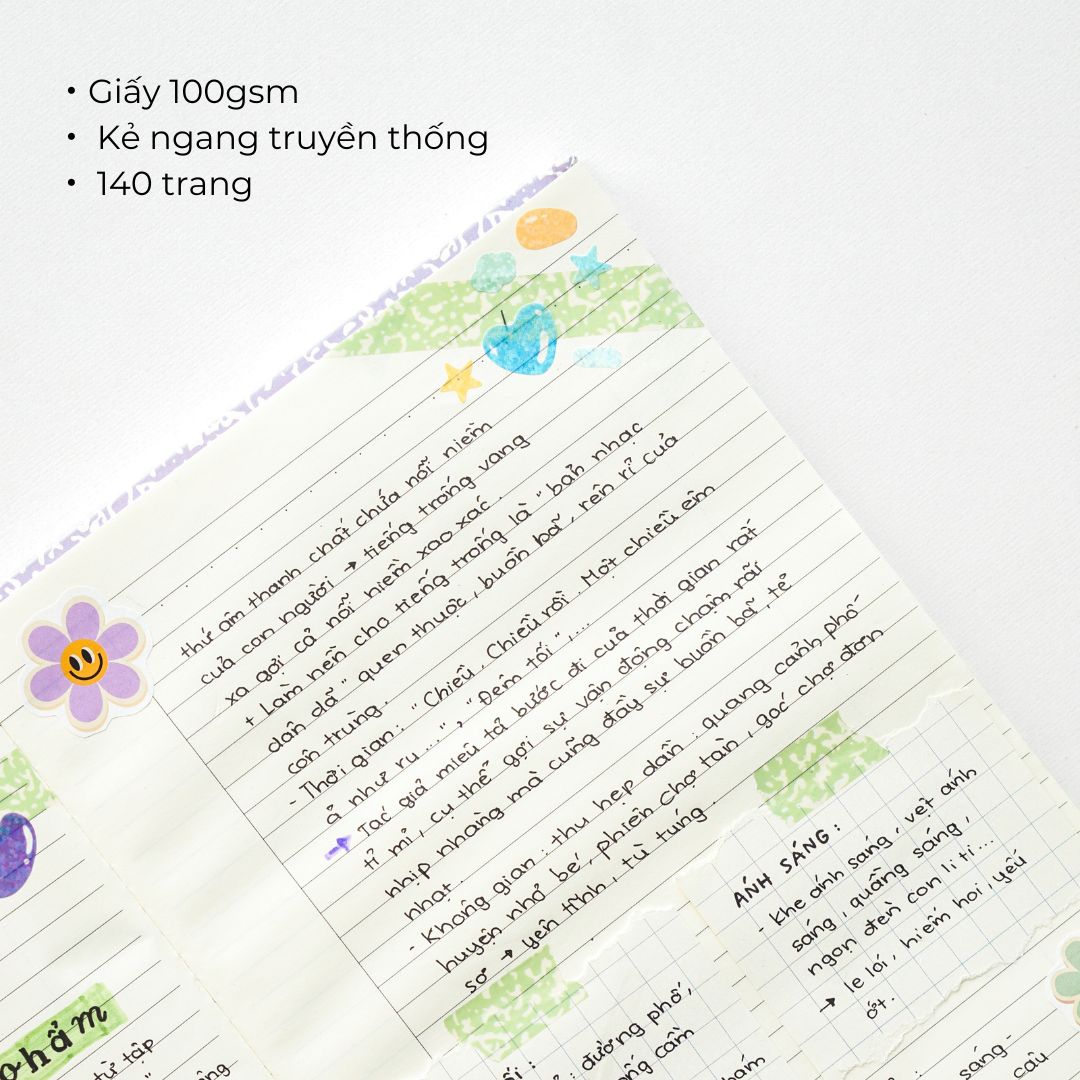 • Giấy 100gsm
• Kẻ ngang truyền thống
• 140 trang
thứ âm thanh chất chứa nỗi niềm
của con người → tiếng trống vang
xa gợi cả nỗi niềm xao xác.
+ Làm nền cho tiếng trống là "bản nhạc
dân dã" quen thuộc, buồn bã, rên rỉ của
côn trùng.
- Thời gian: "Chiều, Chiều rồi. Một chiều êm
ả như ru...", "Đêm tối",...
→ Tác giả miêu tả bước đi của thời gian rất
tỉ mỉ, cụ thể gợi sự vận động chậm rãi
nhịp nhàng mà cũng đầy sự buồn bã, tẻ
nhạt.
- Không gian: thu hẹp dần: quang cảnh phố
huyện nhỏ bé, phiên chợ tàn, góc chợ đơn
sơ → yên tĩnh, tù túng.
ÁNH SÁNG:
- khe ánh sáng, vệt ánh
sáng, quầng sáng,
ngọn đèn con li ti...
→ le lói, hiếm hoi, yếu
ớt.
đường phố,
từ tập
sáng -
câu